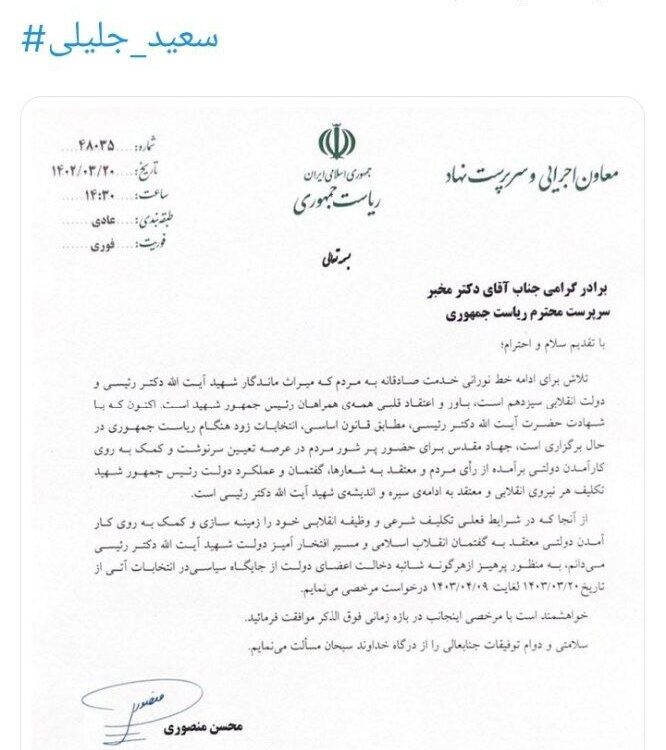 #سعید_جلیلی
شماره: ۴۸۰۳۵
تاریخ: ۱۴۰۲/۰۳/۲۰
ساعت: ۱۴:۳۰
طبقه‌بندی: عادی
فوریت: فوری
جمهوری اسلامی ایران
ریاست جمهوری
معاون اجرایی و سرپرست نهاد
بسمه تعالی
برادر گرامی جناب آقای دکتر مخبر
سرپرست محترم ریاست جمهوری
با تقدیم سلام و احترام؛
تلاش برای ادامه خط نورانی خدمت صادقانه به مردم که میراث ماندگار شهید آیت الله دکتر رئیسی و
دولت انقلابی سیزدهم است، باور و اعتقاد قلبی همه‌ی همراهان رئیس جمهور شهید است. اکنون که با
شهادت حضرت آیت الله دکتر رئیسی، مطابق قانون اساسی، انتخابات زود هنگام ریاست جمهوری در
حال برگزاری است، جهاد مقدس برای حضور پر شور مردم در عرصه تعیین سرنوشت و کمک به روی
کارآمدن دولتی برآمده از رأی مردم و معتقد به شعارها، گفتمان و عملکرد دولت رئیس جمهور شهید
تکلیف هر نیروی انقلابی و معتقد به ادامه‌ی سیره و اندیشه‌ی شهید آیت الله دکتر رئیسی است.
از آنجا که در شرایط فعلی تکلیف شرعی و وظیفه انقلابی خود را زمینه سازی و کمک به روی کار
آمدن دولتی معتقد به گفتمان انقلاب اسلامی و مسیر افتخار آمیز دولت شهید آیت الله دکتر رئیسی
می‌دانم، به منظور پرهیز از هرگونه شائبه دخالت اعضای دولت از جایگاه سیاسی‌در انتخابات آتی از
تاریخ ۱۴۰۳/۰۳/۲۰ لغایت ۱۴۰۳/۰۴/۰۹ درخواست مرخصی می‌نمایم.
خواهشمند است با مرخصی اینجانب در بازه زمانی فوق الذکر موافقت فرمائید.
سلامتی و دوام توفیقات جنابعالی را از درگاه خداوند سبحان مسألت می‌نمایم.
محسن منصوری